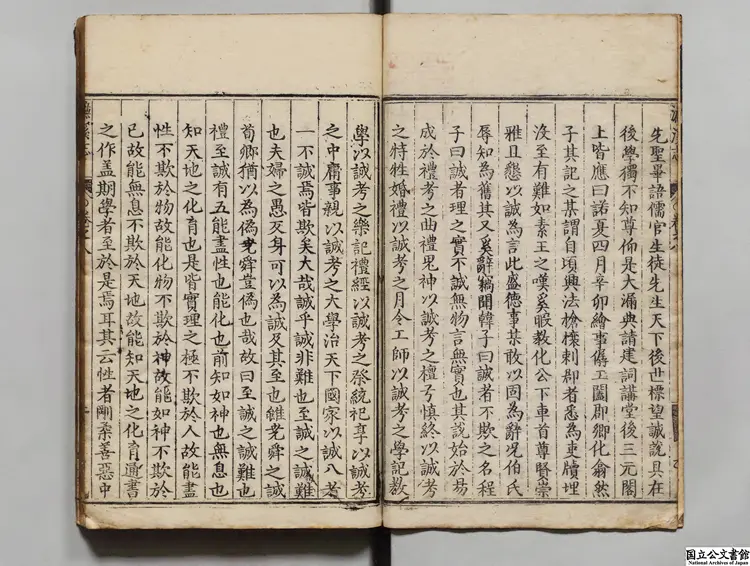 先聖畢語儒官生徒先生天下後世標望誠說具在
後學獨不知尊仰是大漏典請建詞講堂後三元閣
上皆應曰諾夏四月辛卯繪事僝工闔郡卿化翕然
子其記之某謂自頃興法槍櫟刺却者悉為吏牘埋
沒至有難如素王之嘆奚暇教化公下車首尊賢崇
雅且懇以誠為言此盛德事某敢以固為辭况伯氏
辱知為舊其又奚辭稱聞韓子曰誠者不欺之名程
子曰誠者理之實不誠無物言無實也其說始於易
成於禮考之曲禮鬼神以誠考之檀弓慎終以誠考
之特牲婚禮以誠考之月令工師以誠考之學記教
學以誠考之樂記禮經以誠考之祭統祀享以誠考
之中庸事親以誠考之大學治天下國家以誠八者
一不誠焉皆欺矣大哉誠乎誠非難也至誠之誠難
也夫婦之愚反身可以為誠及其至也雖堯舜之誠
荀卿猶以為偽堯舜豈偽也哉故曰至誠之誠難也
禮至誠有五能盡性也能化也前知如神也無息也
知天地之化育也是皆實理之極不欺於人故能盡
性不欺於物故能化物不欺於神故能如神不欺於
已故能無息不欺於天地故能知天地之化育通書
之作盖期學者至於是焉耳其云性者剛柔善惡中
濂溪志
国立公文書館
National Archives of Japan